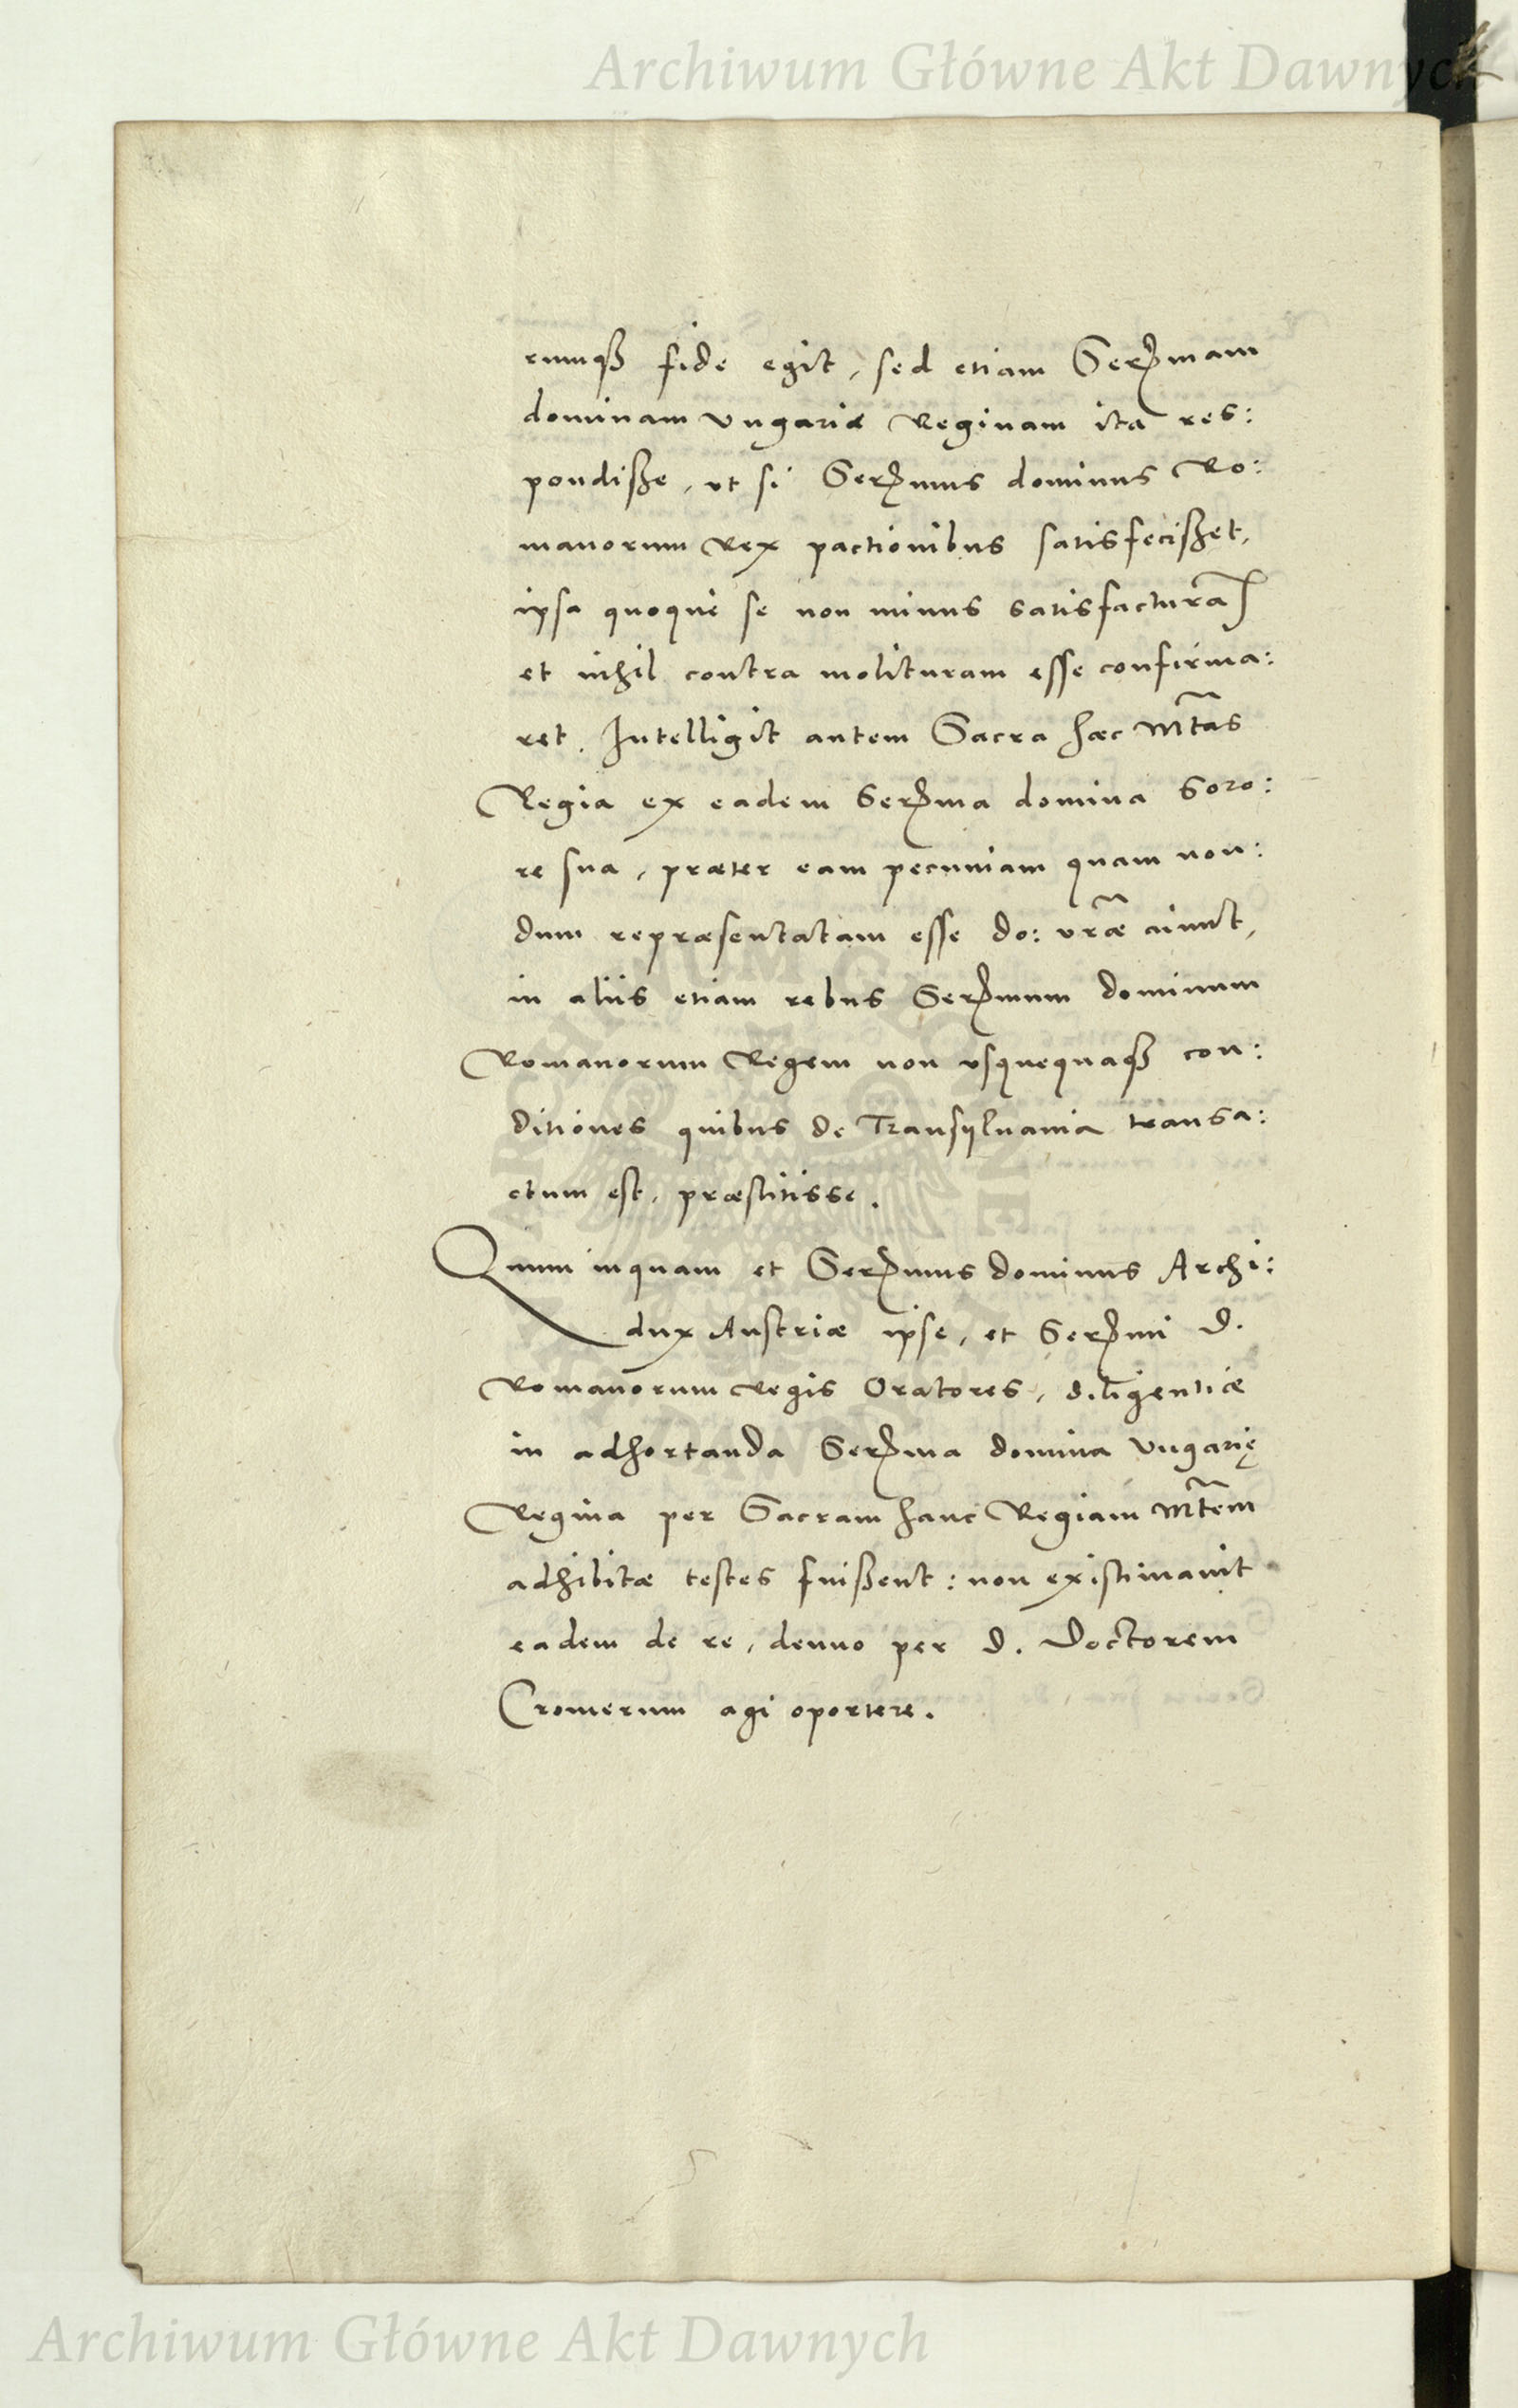 Archiwum Główne Akt Dawnych
rumqꝫ fide egit, sed etiam Serꝫmam
dominam Vngariæ Reginam ita res:
pondisse, vt si Serꝫmus dominus Ro:
manorum Rex pactionibus satisfecisset,
ipsa quoque se non minus satisfacturã
et nihil contra molituram esse confirma:
ret. Intelligit autem Sacra hæc Mt̃as
Regia ex eadem Serꝫma domina Soro:
re sua, præter eam pecuniam quam non:
dum repræsentatam esse do: vr̃æ aiunt,
in alijs etiam rebus Serꝫmum dominum
Romanorum Regem non vsquequaqꝫ con:
ditiones quibus de Transyluania transa:
ctum est, præstitisse.
Quum inquam et Serꝫmus dominus Archi:
dux Austriæ ipse, et Serꝫmi D.
Romanorum Regis Oratores, diligentiæ
in adhortanda Serꝫma domina Vngarię
Regina per Sacram hanc Regiam Mt̃em
adhibitæ testes fuissent: non existimauit
eadem de re, denuo per D. Doctorem
Cromerum agi oportere.
Archiwum Główne Akt Dawnych